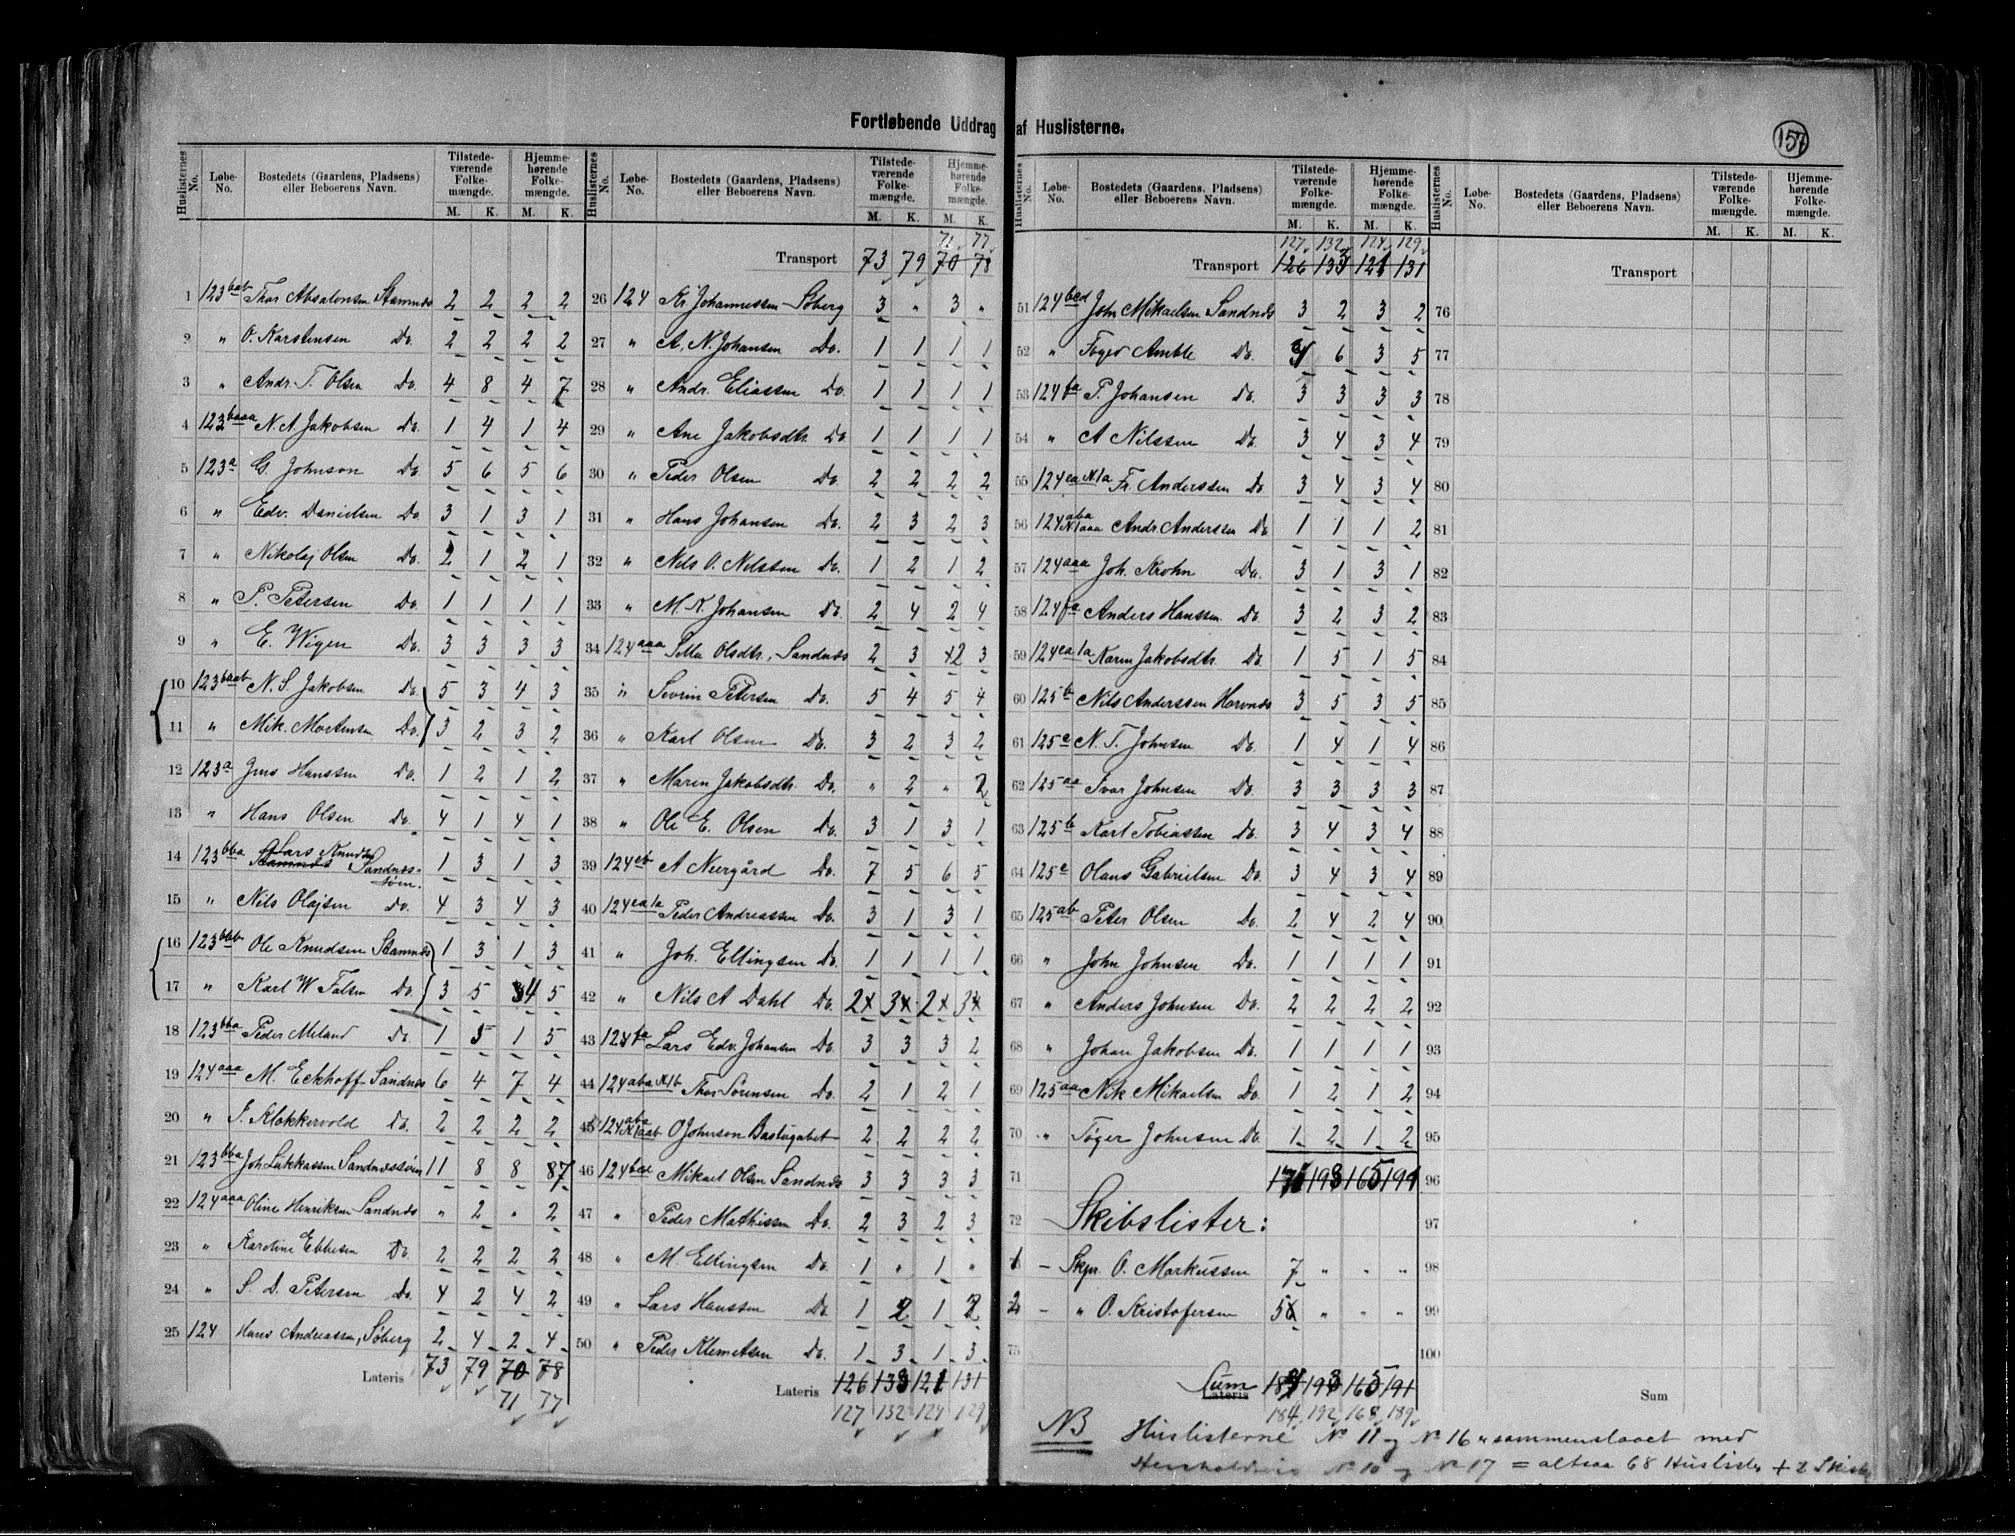 Fortløbende Uddrag af Huslisterne.
157
Huslisternes No. Løbe-No. Bostedets (Gaardens, Pladsens) eller Beboerens Navn. Tilstedeværende Folkemængde. M. K. Hjemmehørende Folkemængde. M. K.
1 123 bab Thor Absalonsen Stamnes 2 2 2 2
2 " O. Karstensen Do. 2 2 2 2
3 " Andr. T. Olsen Do. 4 8 4 7
4 123 baaa N. A. Jakobsen Do. 1 4 1 4
5 123 a G. Johnson Do. 5 6 5 6
6 " Edv. Danielsen Do. 3 1 3 1
7 " Nikolaj Olsen Do. 2 1 2 1
8 " P. Petersen Do. 1 1 1 1
9 " E. Wigen Do. 3 3 3 3
10 123 baab N. S. Jakobsen Do. 5 3 4 3
11 " Mik. Mortensen Do. 3 2 3 2
12 123 a Jens Hanssen Do. 1 2 1 2
13 " Hans Olsen Do. 4 1 4 1
14 123 bba Lars Knudsen Stamnes Sandnes-søen. 1 3 1 3
15 " Nils Olajsen Do. 4 3 4 3
16 123 bbb Ole Knudsen Stamnes 1 3 1 3
17 " Karl W Falsen Do. 3 5 4 5
18 123 bba Peder Meland Do. 1 5 1 5
19 124 aaa M. Eckhoff Sandnes 6 4 7 4
20 " Klokkervold Do. 2 2 2 2
21 123 bba Joh. Lukkassen Sandnessøen 11 8 8 7
22 124 aaa Oline Henriksen Sandnes " 2 " 2
23 " Karoline Ebbesen Do. 2 2 2 2
24 " S. D. Petersen Do. 4 2 4 2
25 124 Hans Andreassen, Søberg 2 4 2 4
Lateris 73 79 70 78
71 77
Huslisternes No. Løbe-No. Bostedets (Gaardens, Pladsens) eller Beboerens Navn. Tilstedeværende Folkemængde. M. K. Hjemmehørende Folkemængde. M. K.
71 77
Transport 73 79 70 78
26 124 Kr. Johannessen Søberg 3 " 3 "
27 " A. N. Johansen Do. 1 1 1 1
28 " Andr. Eliassen Do. 1 1 1 1
29 " Ane Jakobsdtr. Do. 1 1 1 1
30 " Peder Olsen Do. 2 2 2 2
31 " Hans Johansen Do. 2 3 2 3
32 " Nils O. Nilssen Do. 1 2 1 2
33 " M. N. Johansen Do. 2 4 2 4
34 124 aaa Olsdtr., Sandnes 2 3 2 3
35 " Sevrin Petersen Do. 5 4 5 4
36 " Karl Olsen Do. 3 2 3 2
37 " Maren Jakobsdtr. Do. " 2 " 2
38 " Ole E. Olsen Do. 3 1 3 1
39 124 eb A Neergård Do. 7 5 6 5
40 124 ea 1a Peder Andreassen Do. 3 1 3 1
41 " Joh. Ellingsen Do. 1 1 1 1
42 " Nils A Dahl Do. 2 3 2 3
43 124 fa Lars Edv. Johansen Do. 3 3 3 2
44 124 aba N1b Thor Sørensen Do. 2 1 2 1
45 124 aba N1aab O Johnsen Bastugabet 2 2 2 2
46 124 bcd Mikael Olsen Sandnes 3 3 3 3
47 " Peder Mathissen Do. 2 3 2 3
48 " M Ellingsen Do. 1 " 1 "
49 " Lars Hanssen Do. 1 2 1 2
50 " Peder Klemetsen Do. 1 3 1 3
Lateris 126 133 121 131
127 132 124 129
Huslisternes No. Løbe-No. Bostedets (Gaardens, Pladsens) eller Beboerens Navn. Tilstedeværende Folkemængde. M. K. Hjemmehørende Folkemængde. M. K.
127 132 124 129
Transport 126 133 121 131
51 124 bcd John Mikaelsen Sandnes 3 2 3 2
52 " Amble Do. 6 3 5
53 124 fa P. Johansen Do. 3 3 3 3
54 " A Nilssen Do. 3 4 3 4
55 124 ea N1a Fr. Anderssen Do. 3 4 3 4
56 124 aba N1aaa Andr. Anderssen Do. 1 1 1 2
57 124 aaa Joh. Krohn Do. 3 1 3 1
58 124 fa Anders Hanssen Do. 3 2 3 2
59 124 ea 1a Karen Jakobsdtr. Do. 1 5 1 5
60 125 b Nils Anderssen Horvnes 3 5 3 5
61 125 c N. T. Johnsen Do. 1 4 1 4
62 125 aa Ivar Johnsen Do. 3 3 3 3
63 125 b Karl Tobiassen Do. 3 4 3 4
64 125 c Olaus Gabrielsen Do. 3 4 3 4
65 125 ab Peter Olsen Do. 2 4 2 4
66 " John Johnsen Do. 1 1 1 1
67 " Anders Johnsen Do. 2 2 2 2
68 " Johan Jakobsen Do. 1 1 1 1
69 125 aa Nik Mikaelsen Do. 1 2 1 2
70 " Tøger Johnsen Do. 1 2 1 2
71 193 165 191
72 Skibslister:
1 – Skpr. O. Markussen 7 " " "
2 – " O. Kristofersen 5 " " "
75
Sum Lateris 193 165 191
184 192 168 189
Huslisternes No. Løbe-No. Bostedets (Gaardens, Pladsens) eller Beboerens Navn. Tilstedeværende Folkemængde. M. K. Hjemmehørende Folkemængde. M. K.
Transport
76
77
78
79
80
81
82
83
84
85
86
87
88
89
90
91
92
93
94
95
96
97
98
99
100
Sum
NB Huslisterne No 11 og No 16 sammenslaaet med
Henholdsvis No 10 og No 17 = altsaa 68 Huslister + 2 Skibsl